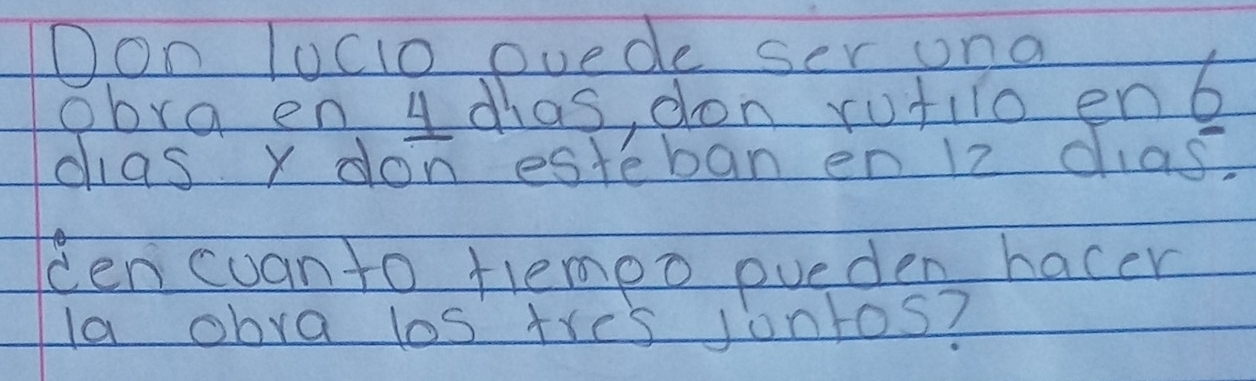 Don lucio puede ser una
obra en 4 dias, don rutilo en 6
dias y don estéban en 12 dias.
¿en cuanto tiempo pueden hacer
la obra los tres juntos?